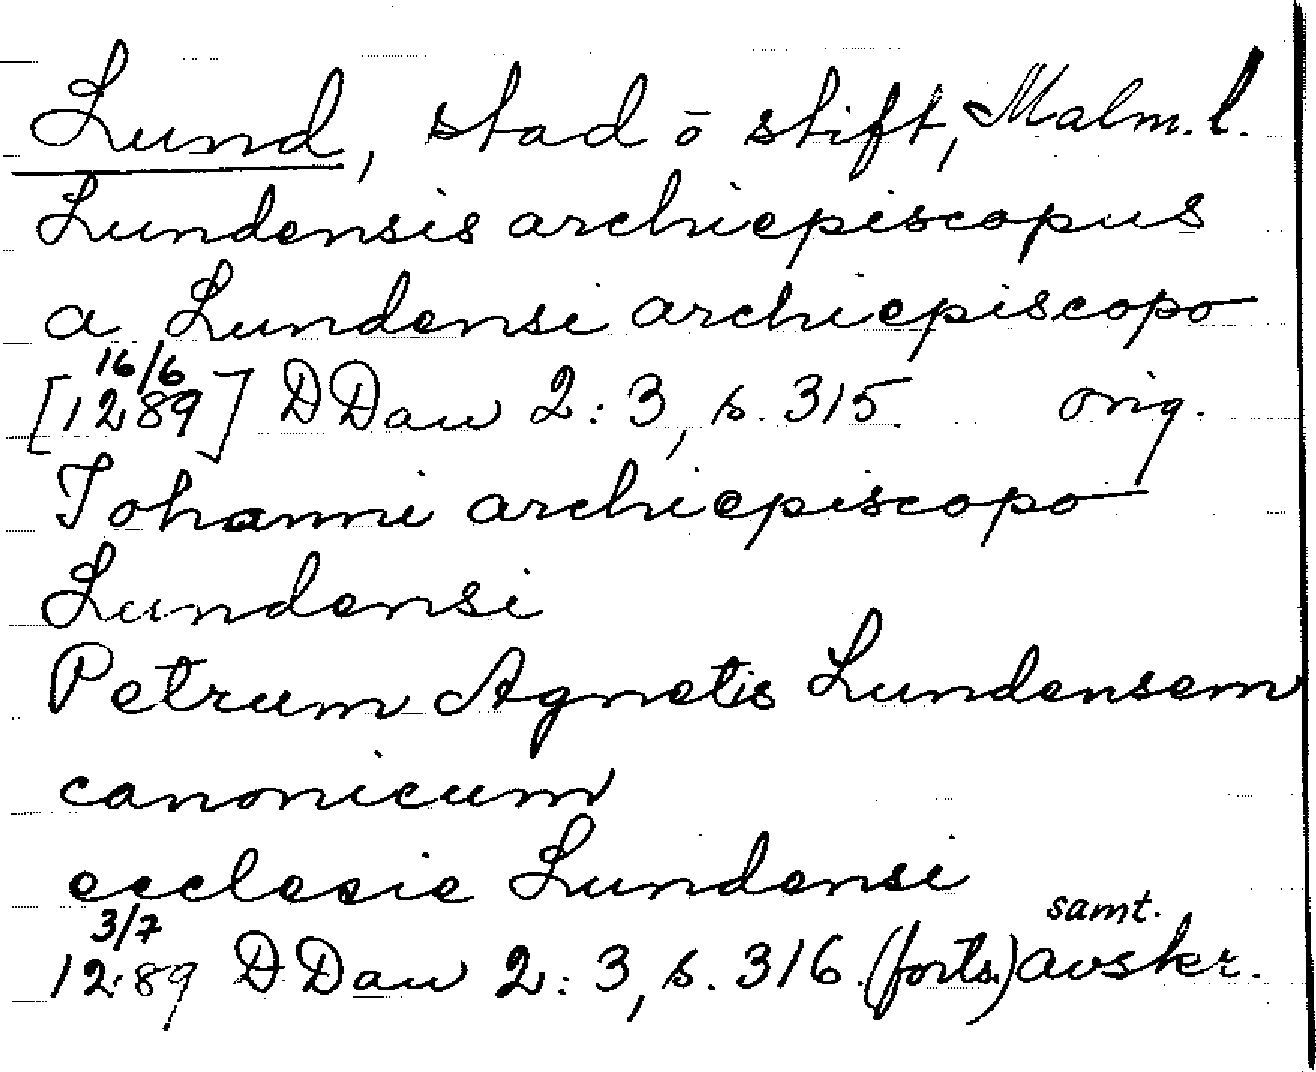 Lund, stad o stift, Malm. l.
Lundensis archiepiscopus
a Lundensi archiepiscopo
16/6
[1289] DDan 2:3, s. 315 orig.
Johanni archiepiscopo
Lundensi
Petrum Agnetis Lundensem
canonicum
ecclesie Lundensi
3/7 samt.
1289 DDan 2:3, s. 316 (forts.) avskr.